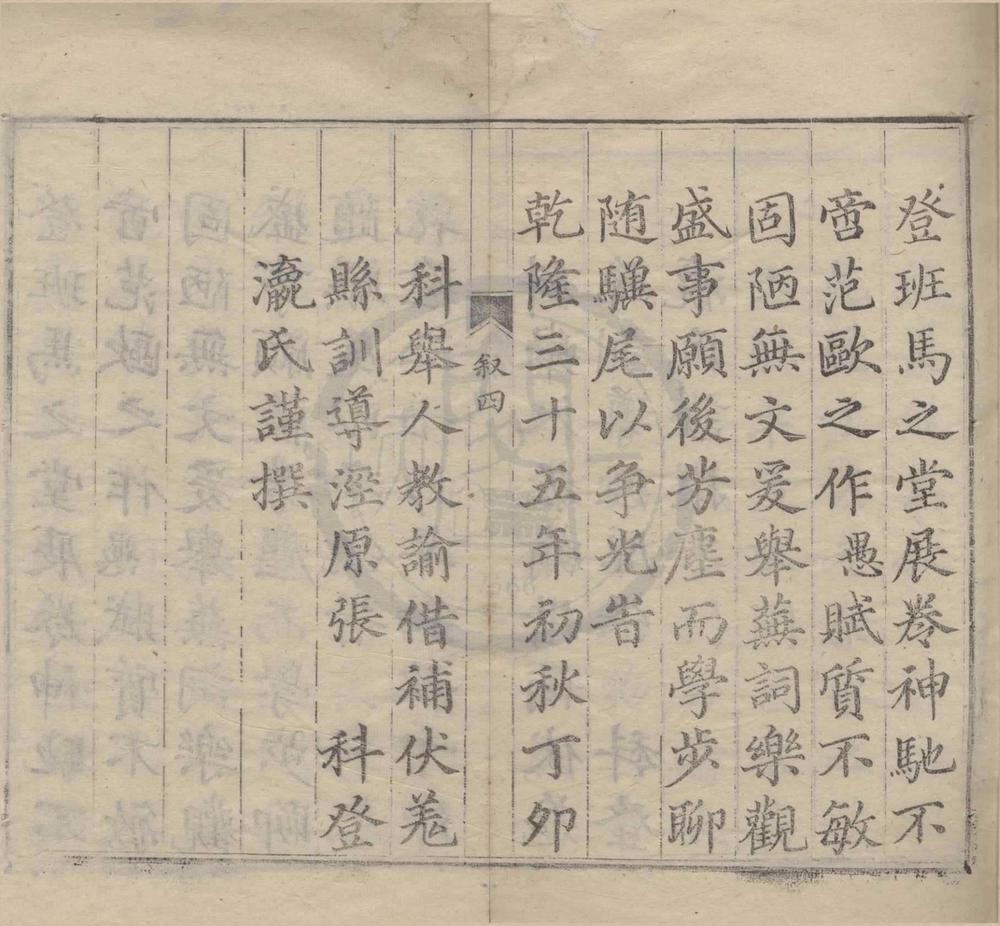 登班馬之堂展卷神馳不
啻范歐之作愚賦質不敏
固陋無文爰舉蕪詞樂觀
盛事願後芳塵而學步聊
随驥尾以争光旹
乾隆三十五年初秋丁卯
叙四
科舉人教諭借補伏羌
縣訓導涇原張科登
瀛氏謹撰